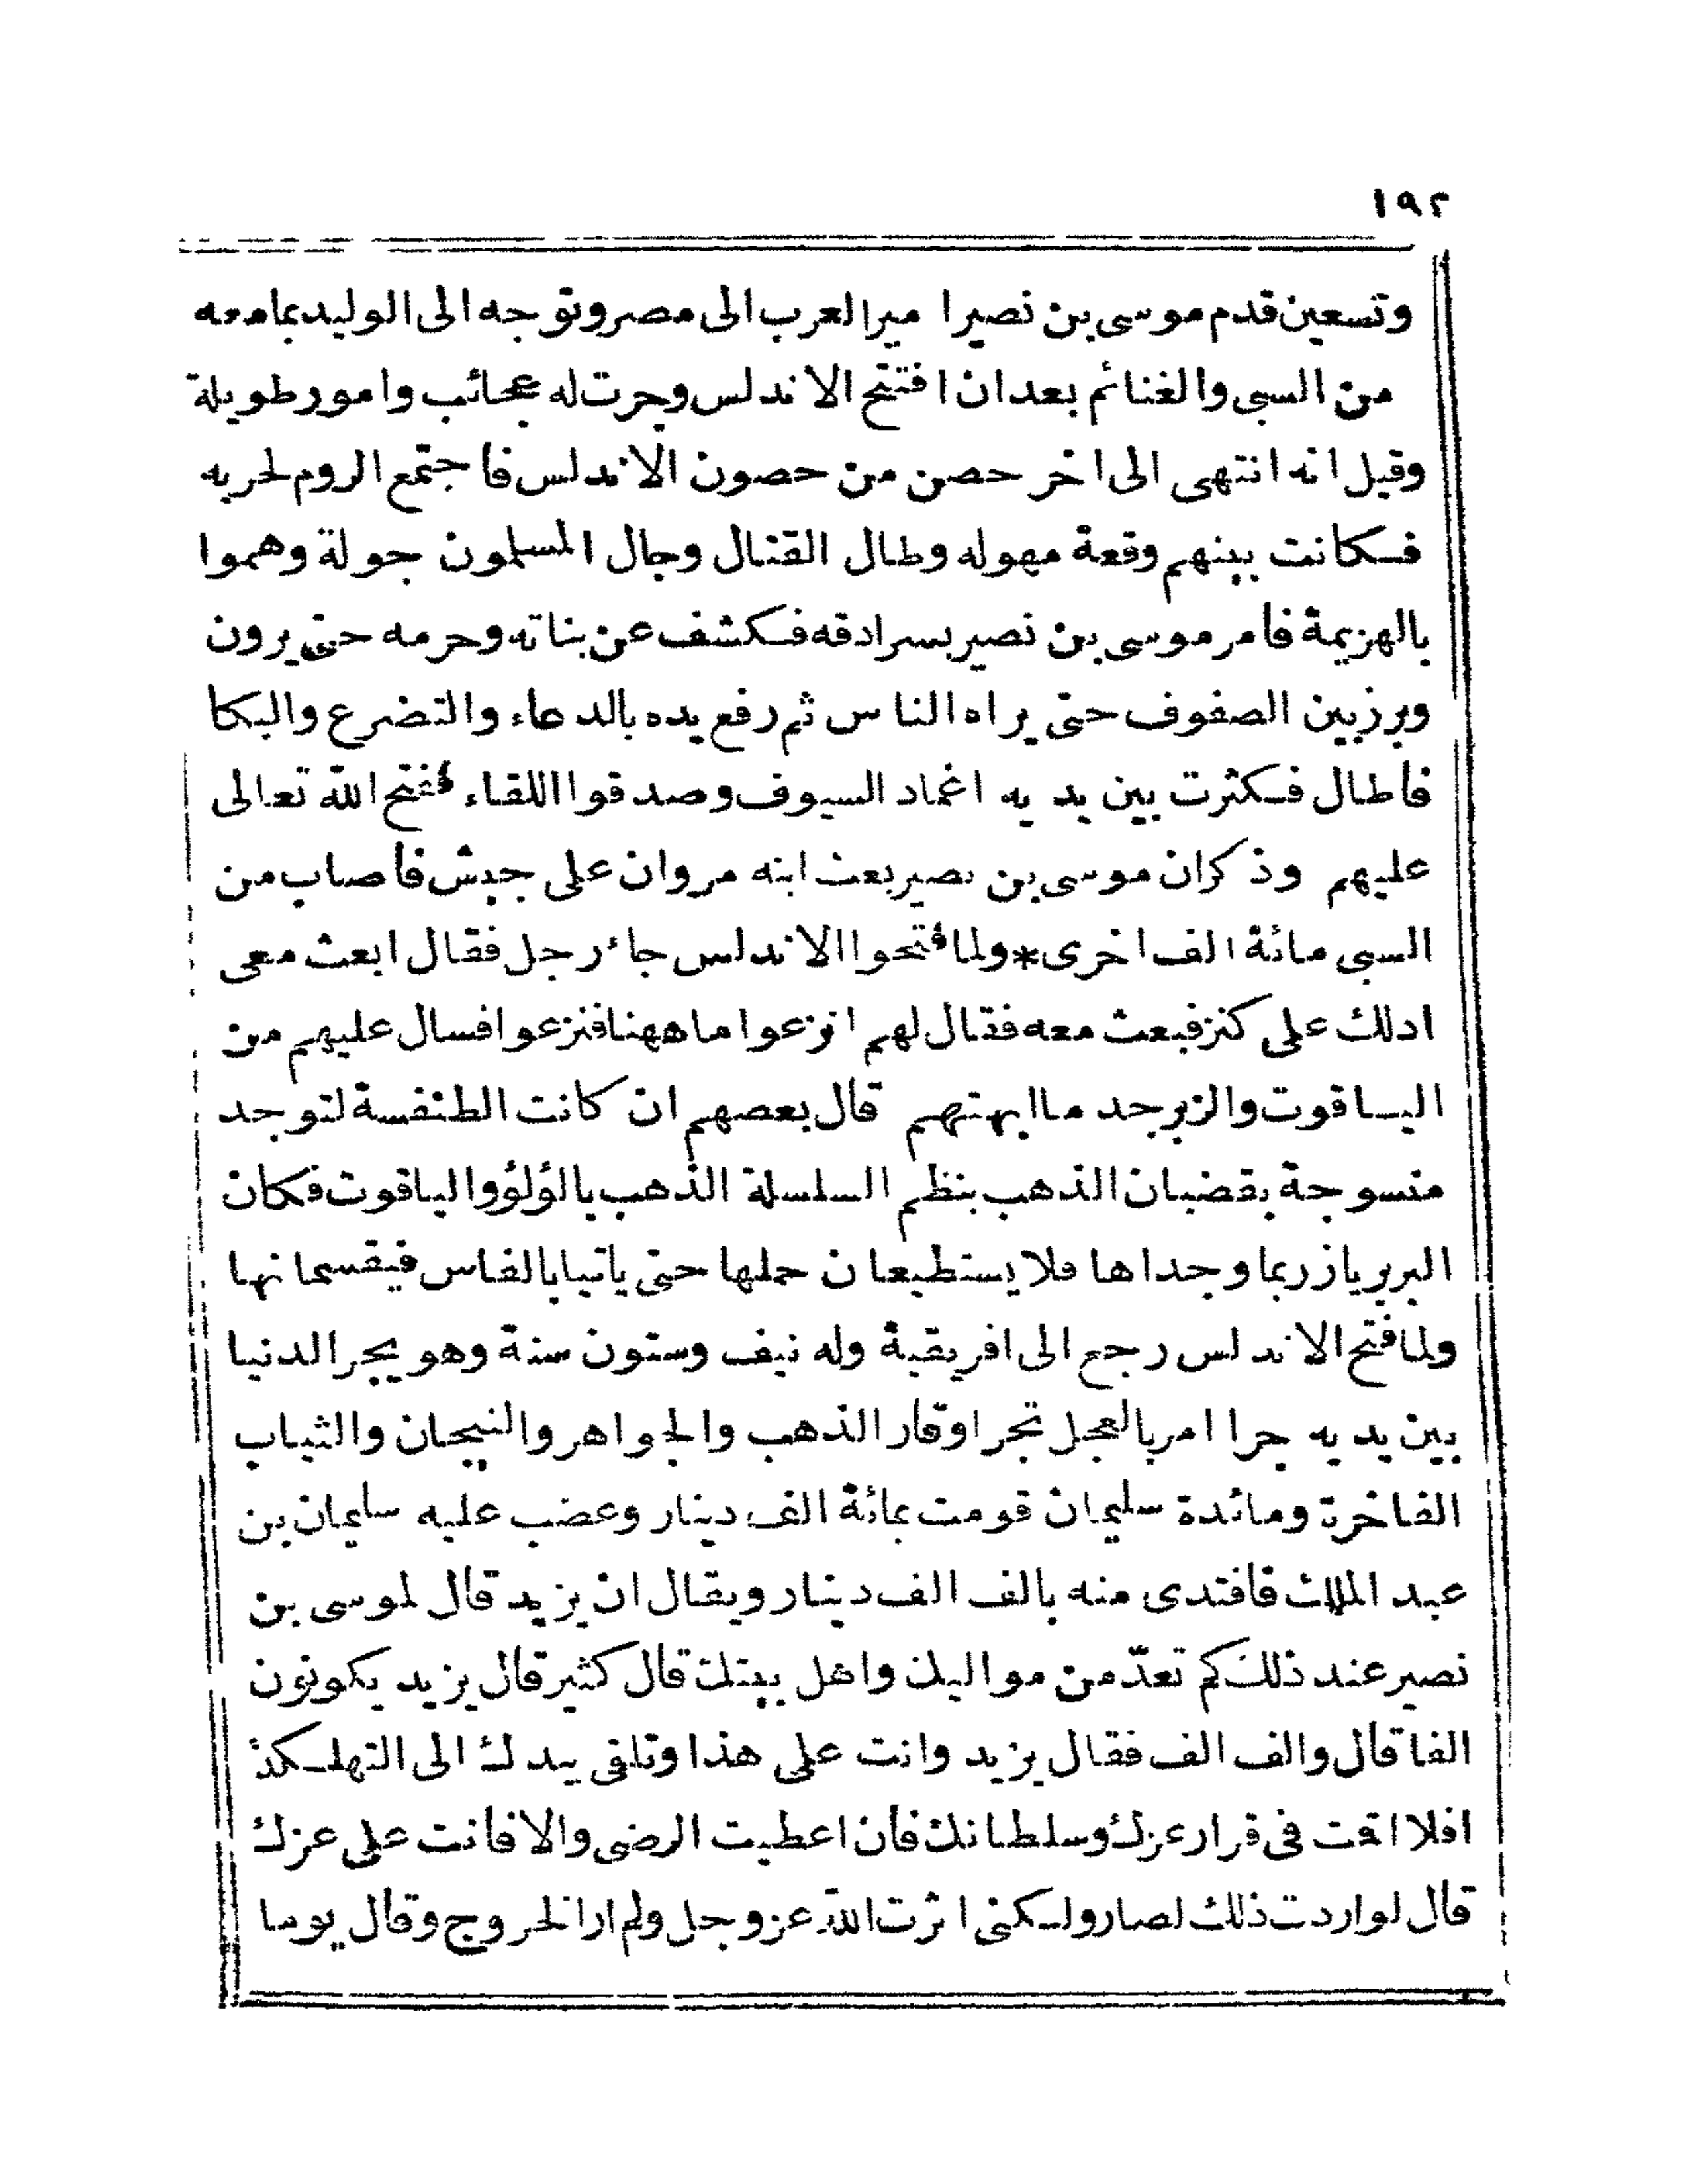 ١٩٢
وتسعين قدم موسى بن نصير امير العرب الى مصر وتوجه الى الوليد بما معه
من السبى والغنائم بعد ان افتتح الاندلس وجرت له عجائب وامور طويلة
وقيل انه انتهى الى اخر حصن من حصون الاندلس فاجتمع الروم لحربه
فكانت بينهم وقعة مهوله وطال القتال وجال المسلمون جولة وهموا
بالهزيمة فامر موسى بن نصير بسرادقه فكشف عن بناته وحرمه حتى يرون
وبرز بين الصفوف حتى يراه الناس ثم رفع يده بالدعاء والتضرع والبكا
فأطال فكثرت بين يديه اغماد السيوف وصدقوا اللقاء ففتح الله تعالى
عليهم وذكر ان موسى بن نصير بعث ابنه مروان على جيش فأصاب من
السبى مائة الف اخرى * ولما فتحوا الاندلس جاء رجل فقال ابعث معى
ادلك على كنز فبعث معه فقال لهم انزعوا ماههنا فنزعوا فسال عليهم من
الياقوت والزبرجد ما ابهتهم قال بعضهم ان كانت الطنفسة لتوجد
منسوجة بقضبان الذهب بنظم السلسلة الذهب بالؤلؤ والياقوت فكان
البربريان ربما وجداها فلا يستطيعان حملها حتى ياتيا بالفاس فيقسمانها
ولما فتح الاندلس رجع الى افريقية وله نيف وستون سنة وهو يجر الدنيا
بين يديه جرا امر بالعجل تجر اوقار الذهب والجواهر والتيجان والثياب
الفاخرة ومائدة سليمان قومت بمائة الف دينار وغضب عليه سليمان بن
عبد الملك فافتدى منه بالف الف دينار ويقال ان يزيد قال لموسى بن
نصير عند ذلك كم تعدّ من مواليك واهل بيتك قال كثير قال يزيد يكونون
الفا قال والف الف فقال يزيد وانت على هذا وتلقى بيدك الى التهلكة
افلا اقمت فى قرار عزك وسلطانك فأن اعطيت الرضى والا فانت على عزك
قال لو اردت ذلك لصار ولكنى اثرت الله عز وجل ولم ار الخروج وقال يوما